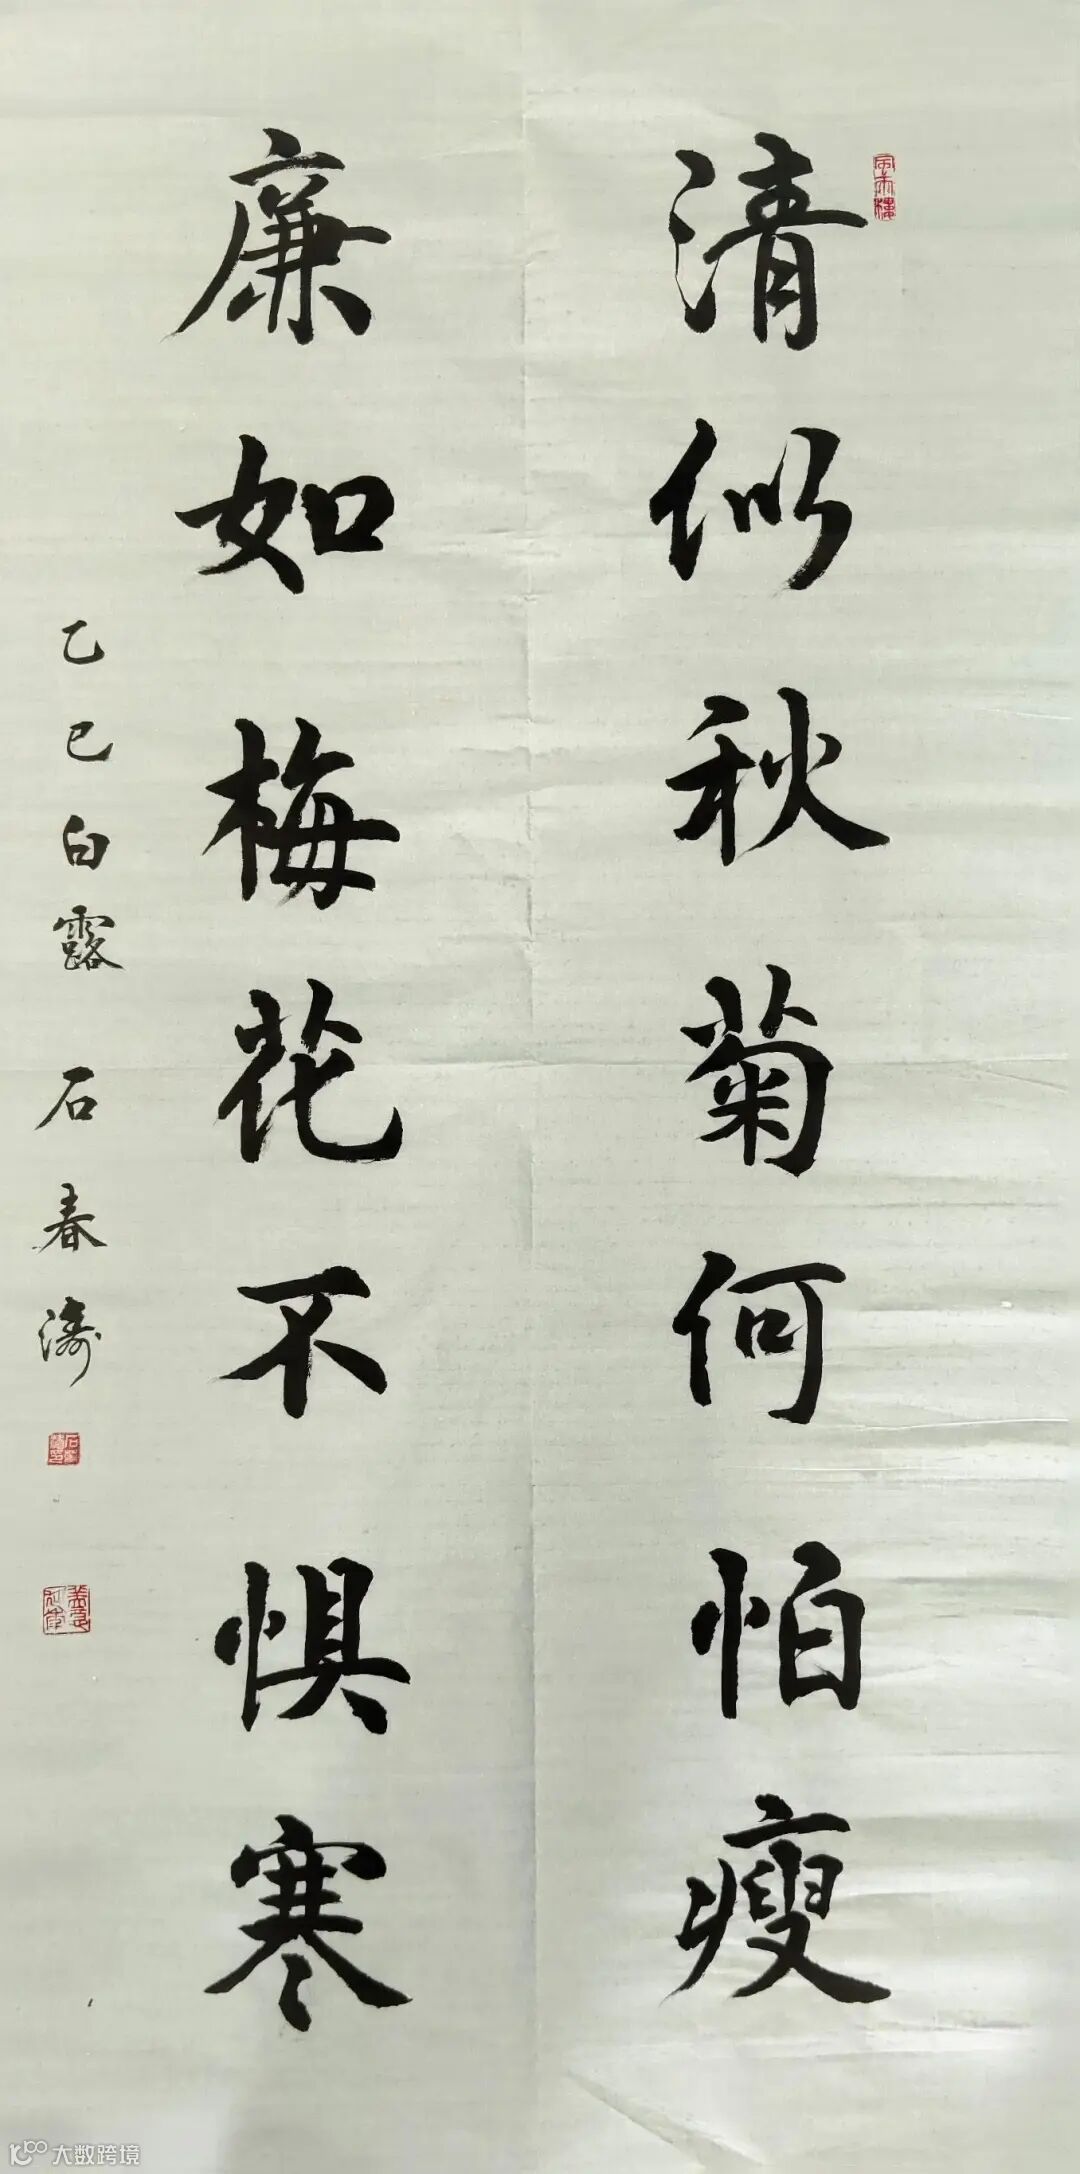 清似秋菊何怕瘦
廉如梅花不惧寒
乙巳白露 石春涛
大数跨境